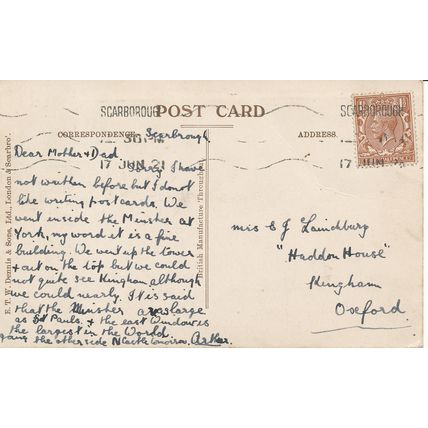 POST CARD
SCARBOROUGH
17 JUN 21
SCARBOROUGH
17 JUN 21
CORRESPONDENCE
ADDRESS.
Scarbrough
Dear Mother & Dad
Sorry I have
not written before but I do not
like writing post cards. We
went inside the Minster at
York, my word it is a fine
building. We went up the tower
& out on the top but we could
not quite see Kingham although
we could nearly. It is said
that the Minister as large
as St Pauls. & the east Window is
the largest in the World
the other side Arthur.
Miss E J
"Haddon House"
Kingham
Oxford
E. T. W. Dennis & Sons, Ltd., London & Scarbro'.
British Manufacture Throughout